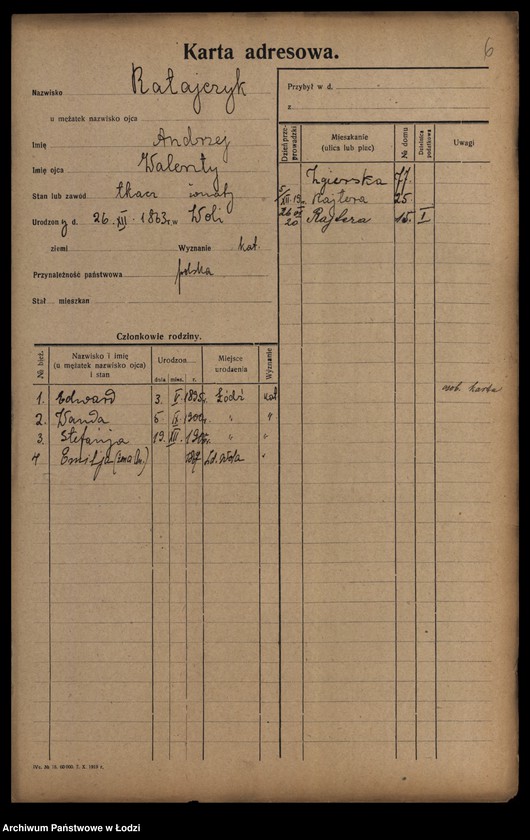 6
Karta adresowa.
Nazwisko Ratajczyk
u mężatek nazwisko ojca
Imię Andrzej
Imię ojca Walenty
Stan lub zawód tkacz żonaty
Urodzony d. 26. XII. 1863 r. w Woli
ziemi Wyznanie kat.
Przynależność państwowa polska
Stał. mieszkan
Przybył w d.
z
Dzień przeprowadzki Mieszkanie (ulica lub plac) № domu Dzielnica podatkowa Uwagi
Zgierska 77
5/XII.19 Rajtera 25
26 20 Rajtera 15. I
Członkowie rodziny.
№ bież. Nazwisko i imię (u mężatek nazwisko ojca) i stan Urodzon. dnia mies. r. Miejsce urodzenia Wyznanie
1. Edward 3. V. 1895 r. Łódź kat osob. karta
2. Wanda 5. IX. 1900 r. " "
3. Stefanja 19. XII. " "
4 Emilja Zd. Wola "
Archiwum Państwowe w Łodzi